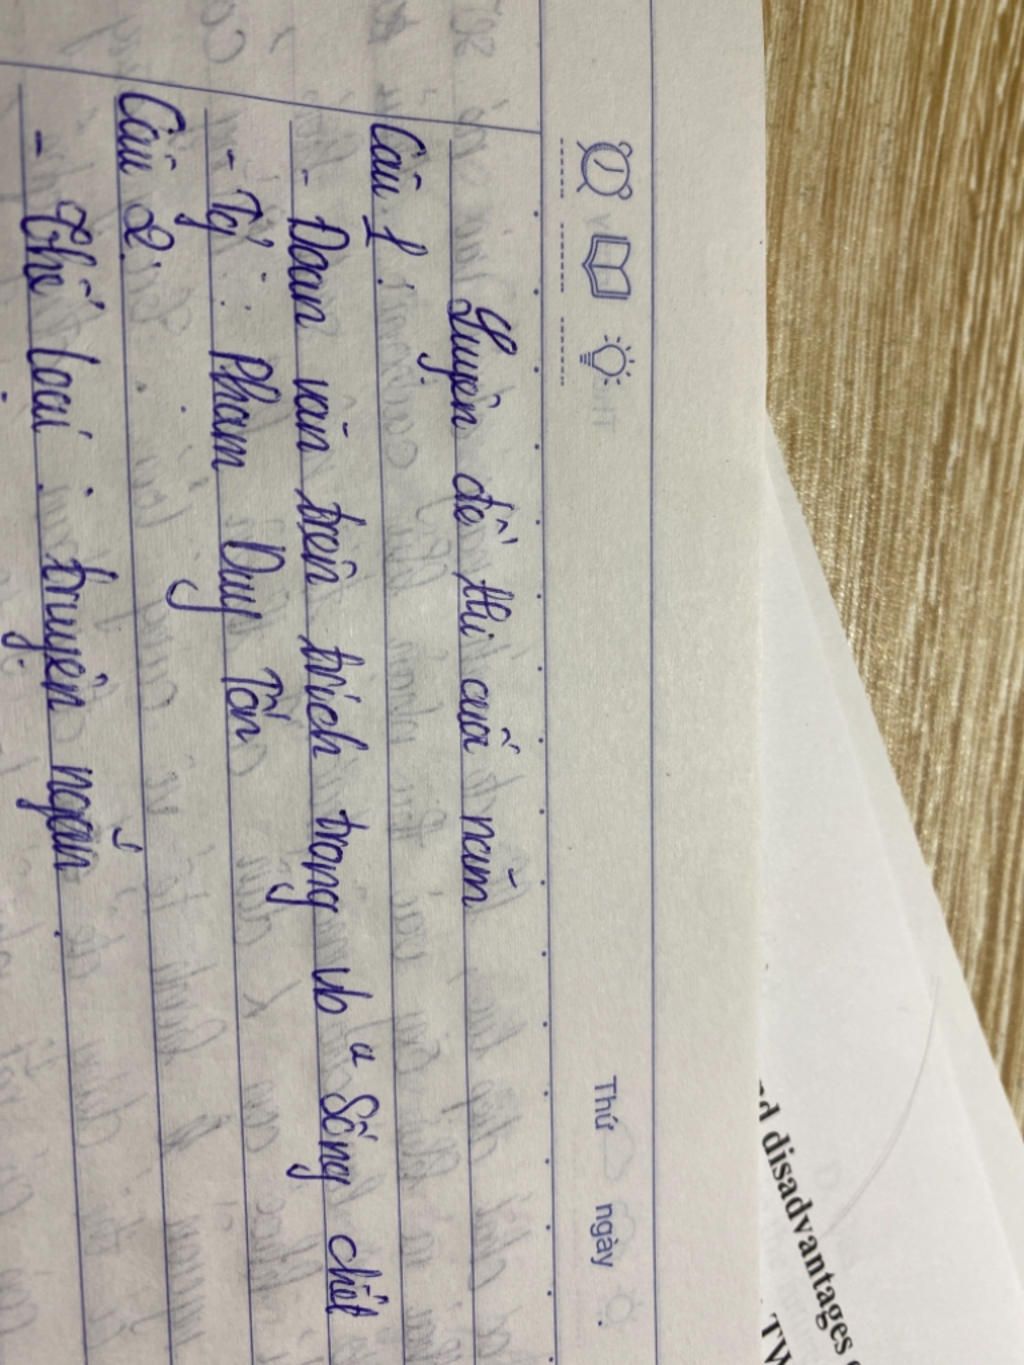 Thứ ngày
Luyện đề thi cuối năm
Câu 1:
- Đoạn văn trên trích trong vb "Sống chết
- Tg: Phạm Duy Tốn
Câu 2:
- Thể loại: truyện ngắn.
d disadvantages
TW